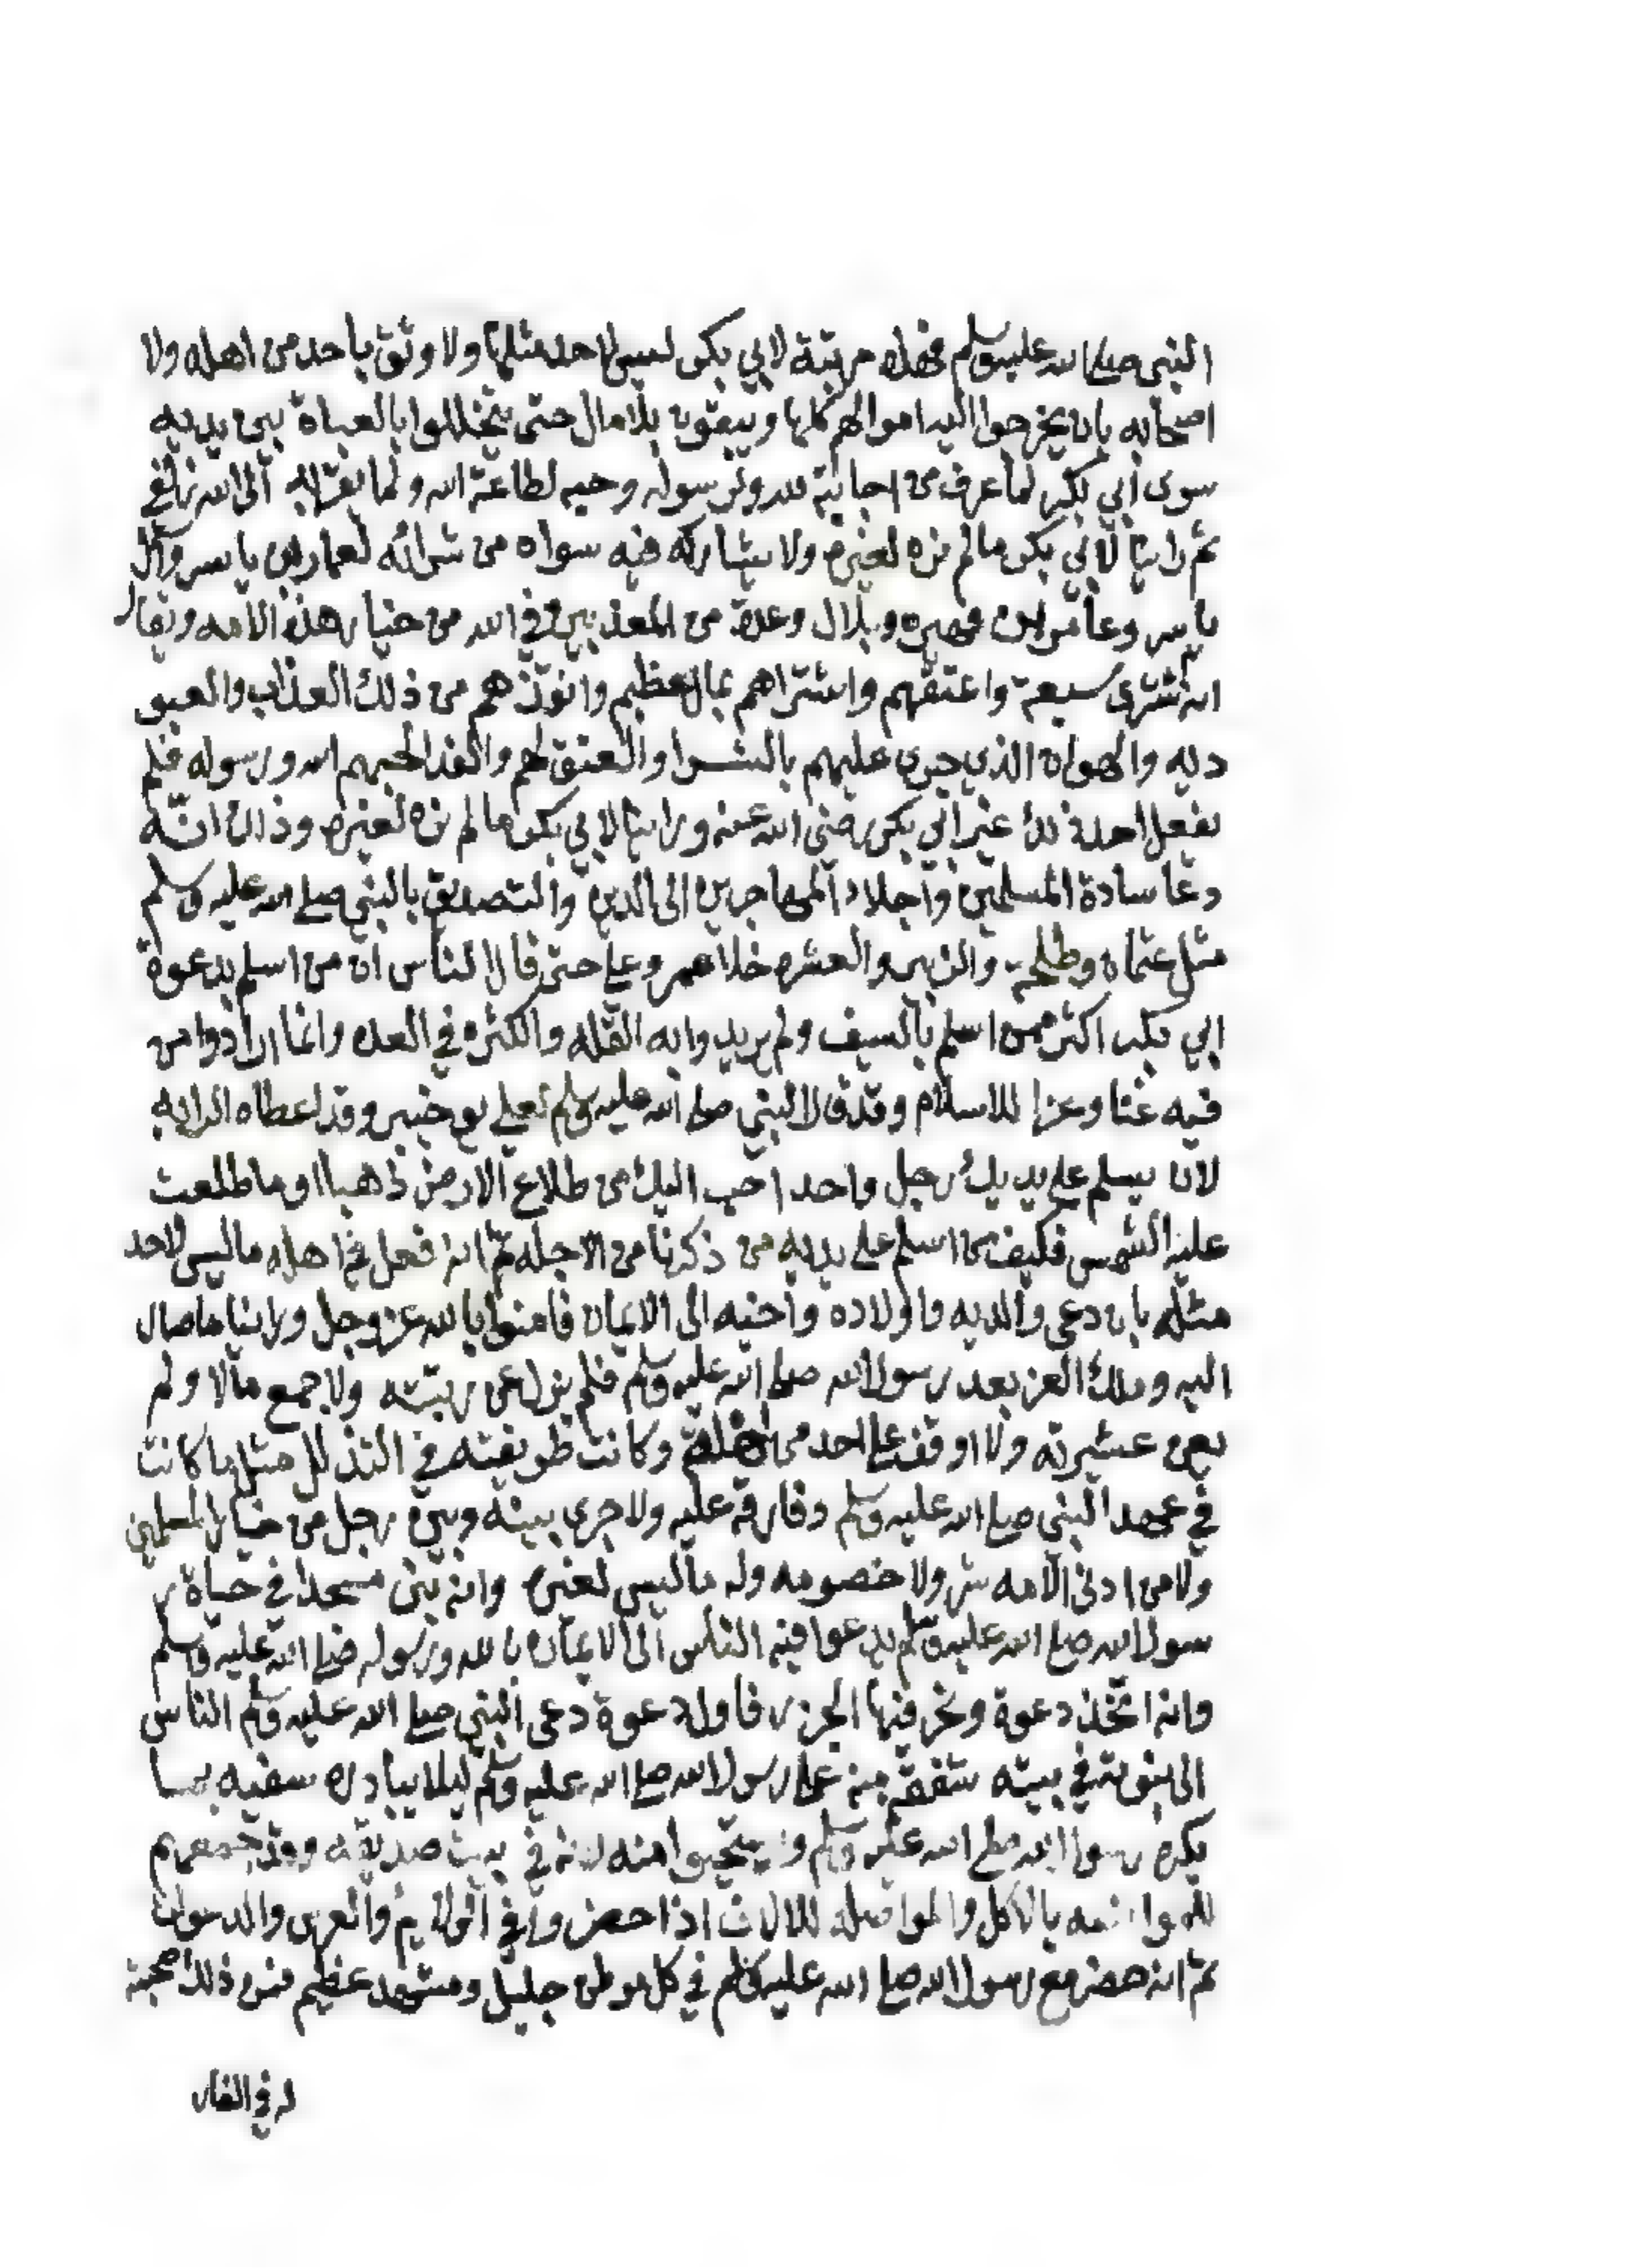 النبي صلى الله عليه وسلم فهذه مرتبة لابي بكر ليس لاحد مثلها ولا وثق باحد من اهله ولا
اصحابه بان يخرجوا اليه اموالهم كلها ويبقون بلا مال حتى يتخللوا بالعباة بين يديه
سوى ابي بكر لما عرف من اجابته لله ولرسوله وحبه لطاعة الله ولما يقربه الى الله زلفى
ثم راينا لابي بكر ما لم نره لغيره ولا يشاركه فيه سواه من شرائه لعمار بن ياسر وآل
ياسر وعامر بن فهيره وبلال وعدة من المعذبين في الله من خيار هذه الامه ويقال
انه اشترى سبعة واعتقهم واشتراهم بمال عظيم وانقذهم من ذلك العذاب والعبو
ديه والهوان الذي جرى عليهم بالشرا والعتق لهم والفدا لحبهم الله ورسوله فلم
يفعل احد ذلك غير ابي بكر رضى الله عنه وراينا لابي بكر ما لم نره لغيره وذلك انّه
دعا سادة المسلمين واجلاد المهاجرين الى الدين والتصديق بالنبي صلى الله عليه وسلم
مثل عثمان وطلحة والزبير والعشره خلا عمر وعلى حتى قال الناس ان من اسلم بدعوة
ابي بكر اكثر ممن اسلم بالسيف ولم يريدوا به القله والكثره في العدد وانما ارادوا من
فيه غنا وعزا للاسلام وقد قال النبي صلى الله عليه وسلم لعلي يوم خيبر وقد اعطاه الرايه
لان يسلم على يديك رجل واحد احب اليك من طلاع الارض ذهبا او ما طلعت
عليه الشمس فكيف بمن اسلم على يديه من ذكرنا من الاجله ثم انه فعل في اهله ما ليس لاحد
مثله بان دعى والديه واولاده واخيه الى الايمان فامنوا بالله عز وجل وراينا ما صار
اليه وملك العز بعد رسول الله صلى الله عليه وسلم فلم يزل عن رتبته ولا جمع مالا ولم
يعن عشيرته ولا اوقف على احد من وكانت طريقته في التذلل مثل ما كانت
في عهد النبي صلى الله عليه وسلم وفارقه عليه ولا جرى بينه وبين رجل من خيار المسلمين
ولا من ادنى الامه شر ولا خصومه وله ما ليس لغيره وانه بنى مسجدا في حياة ر
سول الله صلى الله عليه وسلم يدعوا فيه الناس الى الايمان بالله ورسوله صلى الله عليه وسلم
وانه اتخذ دعوة ونحر فيها الجزر فاول دعوة دعى النبي صلى الله عليه وسلم الناس
الى نبوته في بيته شفقة منه على رسول الله صلى الله عليه وسلم ليلا يبادره سفيه بما
يكره رسول الله صلى الله عليه وسلم منه لانه في بيت صديقه وقد جمعهم
بالاكل والمواصله للالات اذا حضر وا في
ثم انه حضر مع رسول الله صلى الله عليه وسلم في كل موطن جليل ومشهد عظيم فمن ذلك صحبته
له في الغار